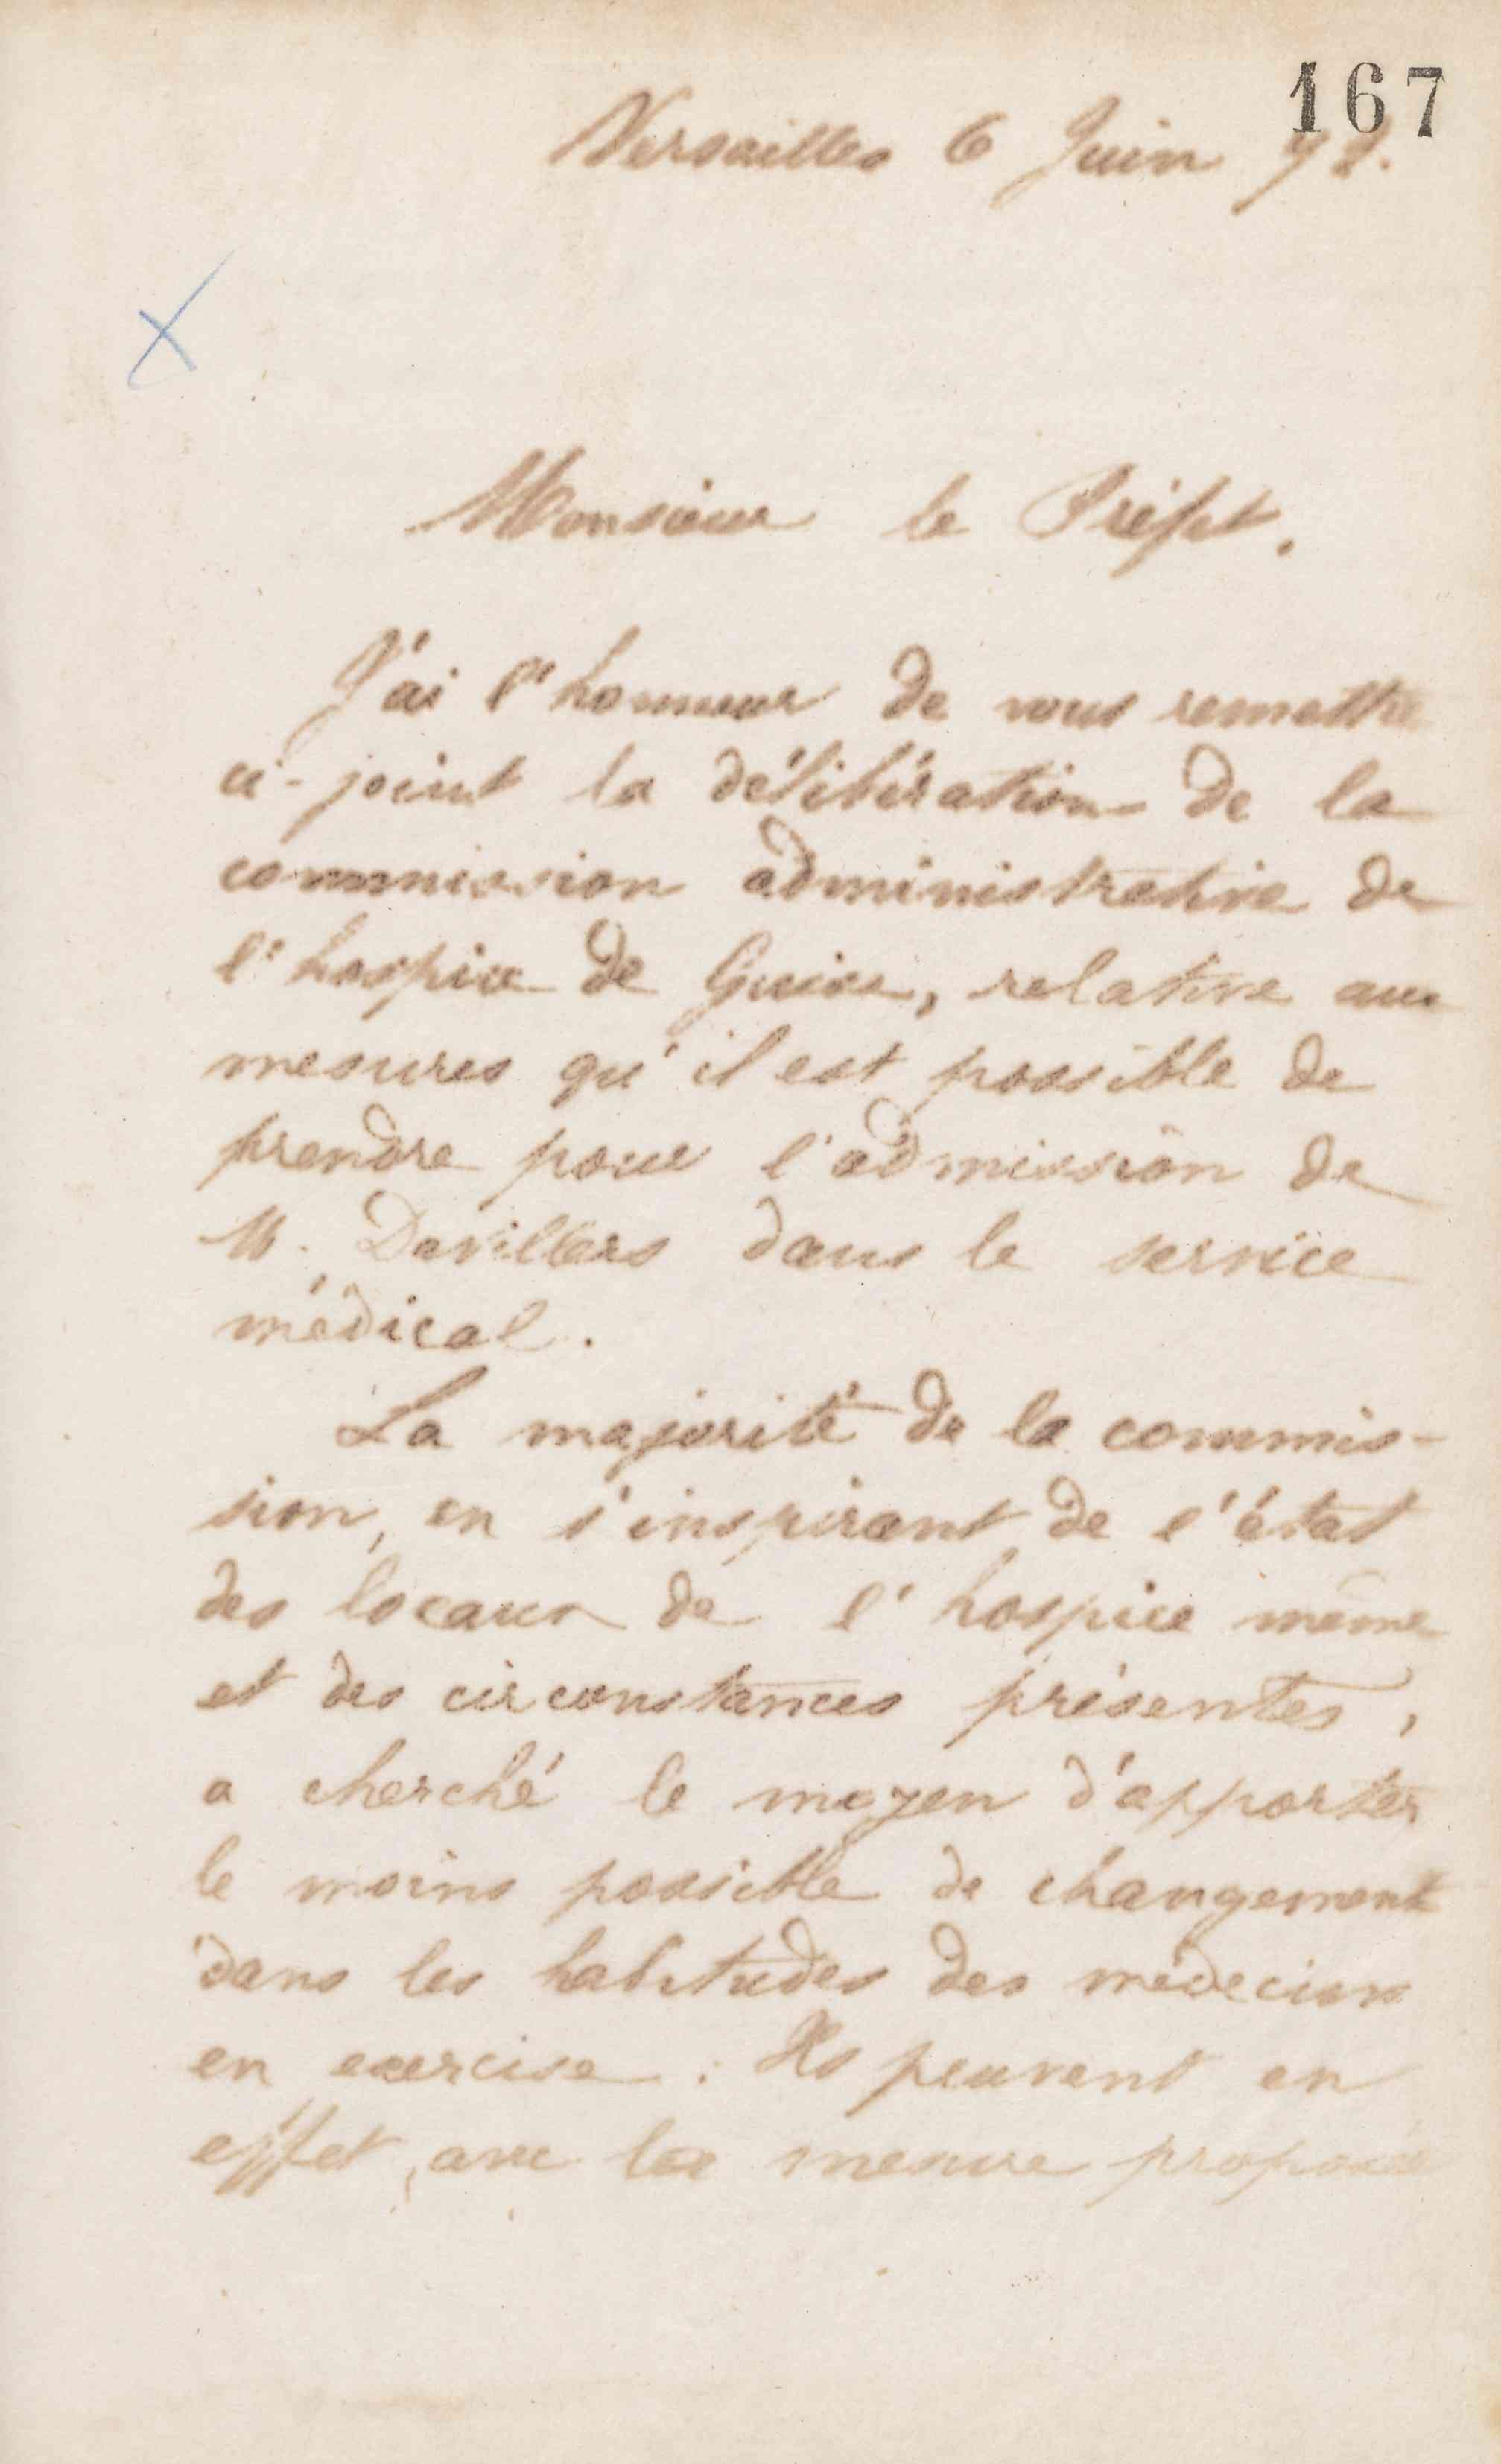 167
Versailles 6 Juin 72.
Monsieur le Préfet.
J'ai l'honneur de vous remettre
ci-joint la délibération de la
commission administrative de
l'hospice de Guise, relative aux
mesures qu'il est possible de
prendre pour l'admission de
M. Devillers dans le service
médical.
La majorité de la commis-
sion, en s'inspirant de l'état
des locaux de l'hospice même
et des circonstances présentes,
a cherché le moyen d'apporter
le moins possible de changement
dans les habitudes des médecins
en exercise. Ils peuvent en
effet, avec la mesure proposée